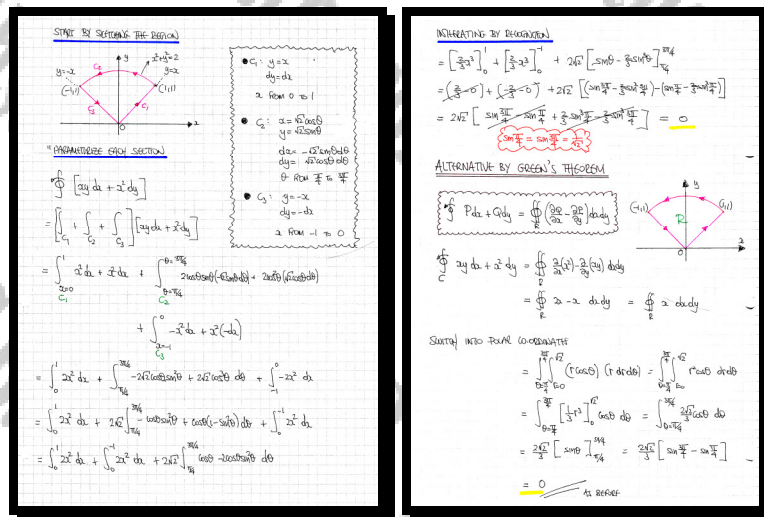 START BY SKETCHING THE REGION
y
x²+y²=2
C₂
y=-x
y=x
(-1,1)
(1,1)
C₃
C₁
O
x
● C₁: y=x
dy=dx
x FROM 0 TO 1
● C₂: x=√2cosθ
y=√2sinθ
dx= -√2sinθdθ
dy= √2cosθdθ
θ FROM π/4 TO 3π/4
● C₃: y=-x
dy=-dx
x FROM -1 TO 0
"PARAMETRIZE EACH SECTION
∮ [xy dx + x² dy]
= [∫_C₁ + ∫_C₂ + ∫_C₃] [xy dx + x² dy]
= ∫_{x=0}^{1} x² dx + x² dx + ∫_{θ=π/4}^{θ=3π/4} 2cosθsinθ(-√2sinθdθ) + 2cos²θ(√2cosθdθ)
C₁ C₂
+ ∫_{x=-1}^{0} -x² dx + x²(-dx)
C₃
= ∫_0^1 2x² dx + ∫_{π/4}^{3π/4} -2√2cosθsin²θ + 2√2cos³θ dθ + ∫_{-1}^0 -2x² dx
= ∫_0^1 2x² dx + 2√2 ∫_{π/4}^{3π/4} -cosθsin²θ + cosθ(1-sin²θ) dθ + ∫_0^{-1} 2x² dx
= ∫_0^1 2x² dx + ∫_0^{-1} 2x² dx + 2√2 ∫_{π/4}^{3π/4} cosθ - 2cosθsin²θ dθ
INTEGRATING BY RECOGNITION
= [2/3 x³]_0^1 + [2/3 x³]_0^{-1} + 2√2 [sinθ - 2/3 sin³θ]_{π/4}^{3π/4}
= (2/3 - 0) + (-2/3 - 0) + 2√2 [(sin 3π/4 - 2/3 sin³ 3π/4) - (sin π/4 - 2/3 sin³ π/4)]
= 2√2 [sin 3π/4 - sin π/4 + 2/3 sin³ π/4 - 2/3 sin³ 3π/4] = 0
sin π/4 = sin 3π/4 = 1/√2
ALTERNATIVE BY GREEN'S THEOREM
∮ Pdx + Qdy = ∯_R (∂Q/∂x - ∂P/∂y) dxdy
y
(-1,1)
(1,1)
R
O
x
∮_C xy dx + x² dy = ∯_R ∂/∂x(x²) - ∂/∂y(xy) dxdy
= ∯_R 2x - x dxdy = ∯_R x dxdy
SWITCH INTO POLAR CO-ORDINATES
= ∫_{θ=π/4}^{3π/4} ∫_{r=0}^{√2} (rcosθ) (r drdθ) = ∫_{θ=π/4}^{3π/4} ∫_{r=0}^{√2} r²cosθ drdθ
= ∫_{θ=π/4}^{3π/4} [1/3 r³]_0^{√2} cosθ dθ = ∫_{θ=π/4}^{3π/4} 2√2/3 cosθ dθ
= 2√2/3 [sinθ]_{π/4}^{3π/4} = 2√2/3 [sin 3π/4 - sin π/4]
= 0
AS BEFORE